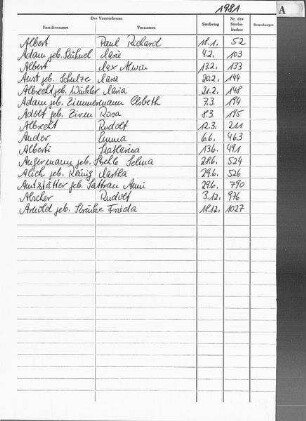 1981 A
Des Verstorbenen
Familienname Vorname Sterbetag Nr. des Sterbebuches Bemerkungen
Albert Paul Richard 18.1. 52
Adam geb. Marie 4.2. 103
Albert Max 13.2. 133
Aust geb. Schulze Klara 20.2. 144
Albrecht geb. Winkler Maria 21.2. 148
Adam geb. Zimmermann Elsbeth 7.3. 194
Adolf geb. Rosa 8.3. 195
Albrecht Rudolf 12.3. 211
Auder Emma 6.6. 463
Alberti Katharina 13.6. 491
Angermann geb. Selma 21.6. 524
Alich geb. König Martha 29.6. 526
geb. 29.6. 790
Abicher Rudolf 3.12. 976
Arnold geb. Frieda 18.12. 1027